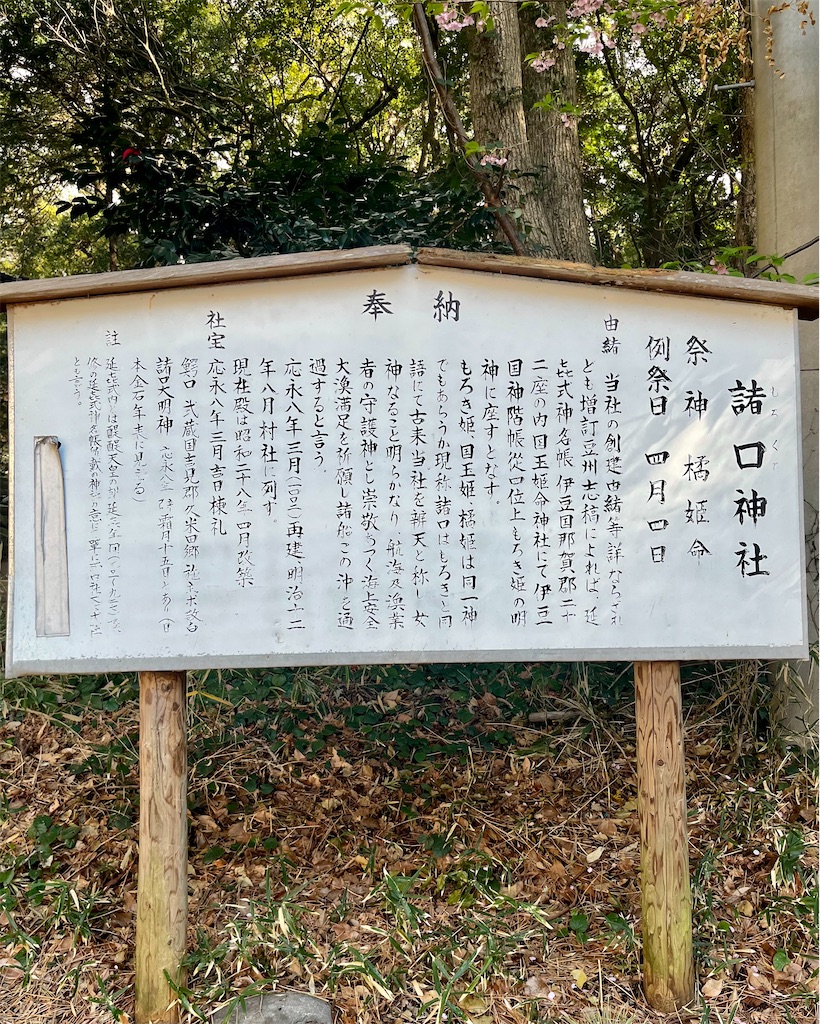 奉納
諸口神社
しょくち
祭神 橘姫命
例祭日 四月四日
由緒 当社の創建由緒等詳ならざれ
とも増訂豆州志稿によれば、延
喜式神名帳伊豆国那賀郡二十
二座の内国玉姫命神社にて伊豆
国神階帳従四位上もろき姫の明
神に座すとなす。
もろき姫、国玉姫、橘姫は同一神
でもあろうか現称諸口はもろきと同
語にて古来当社を辨天と称し女
神なること明らかなり、航海及漁業
者の守護神とし崇敬あつく海上安全
大漁満足を祈願し諸船この沖を通
過すると言う。
応永八年三月(吉日)再建明治十二
年八月村社に列す。
現在殿は昭和二十八年四月改築
社宝 応永八年三月吉日棟礼
鰐口 武蔵国吉見郡久米田郷
諸口大明神 応永八年 霜月十五日とあり(日
本金石年表に見ゆる)
註 延喜式内とは醍醐天皇の
とも言う。